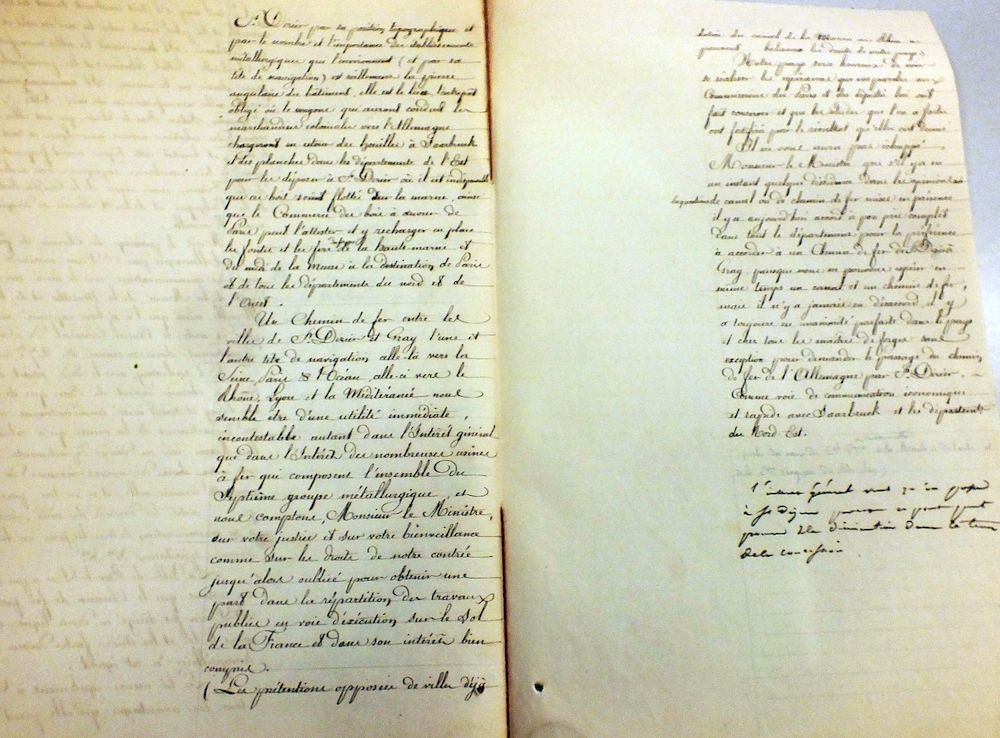 St. Dizier par sa position topographique et
par le nombre et l'importance des établissements
métallurgiques qui l'environnent (et par sa
tête de navigation) est réellement la pierre
angulaire du bâtiment, elle est le lieu l'entrepôt
obligé où les wagons qui auront conduit les
marchandises coloniales vers l'Allemagne
chargeront en retour des houilles à Saarbruck
et des planches dans les départements de l'Est
pour les déposer à St. Dizier où il est indispensable
que ces bois soient flottés sur la marne, ainsi
que le Commerce des bois à œuvrer de
Paris peut l'attester et y recharger en place
les fontes et les fers de la haute marne et
du midi de la Meuse à la destination de Paris
et de tous les départements du nord et de
l'Ouest.
Un Chemin de fer entre les
villes de St. Dizier et Gray l'une et
l'autre tête de navigation celle-là vers la
Seine, Paris & l'Océan, celle-ci vers le
Rhône, Lyon et la Méditéranée nous
semble être d'une utilité immédiate,
incontestable autant dans l'Intérêt général
que dans l'Intérêt des nombreuses usines
à fer qui composent l'ensemble du
Septième groupe métallurgique, et
nous comptons, Monsieur le Ministre,
sur votre justice et sur votre bienveillance
comme sur les droits de notre contrée
jusqu'alors oubliée pour obtenir une
part dans la répartition des travaux
publics en voie d'exécution sur le sol
de la France et dans son intérêt bien
compris.
(Les prétentions opposées de villes déjà
du canal de la Marne au Rhin ne
peuvent balancer les droits de notre pays)
Notre pays sera heureux de voir
se réaliser les espérances que vos paroles aux
Commissions des Pairs et des députés lui ont
fait concevoir et que les études que l'on a faites
ont fortifiées par le résultat qu'elles ont donné
Il ne vous aura pas échappé
Monsieur le Ministre que s'il y a eu
un instant quelque dissidence dans les opinions
de canal ou de chemin de fer mises en présence
il y a aujourd'hui accord à peu près complet
dans tout le département pour la préférence
à accorder à un Chemin de fer de St. Dizier à
Gray puisque nous ne pouvons espérer en
même temps un canal et un chemin de fer,
mais il n'y a jamais eu désaccord il y
a toujours eu unanimité parfaite dans le pays
et chez tous les maîtres de forges sans
exception pour demander le passage du chemin
de fer de l'Allemagne par St. Dizier.
Comme voie de communication économique
et rapide avec Saarbruck et les départements
du Nord Est.
l'intérêt Général
à St Dizier
de la concession